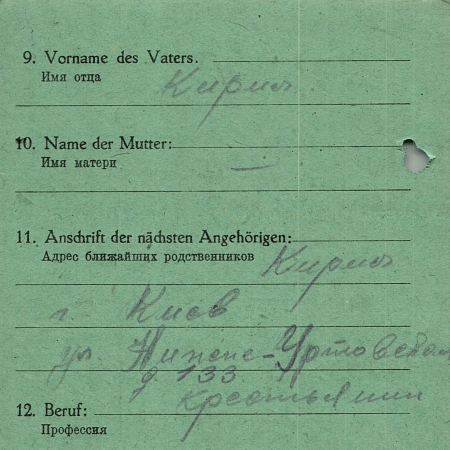 9. Vorname des Vaters.
Имя отца
Кирил
10. Name der Mutter:
Имя матери
—
11. Anschrift der nächsten Angehörigen:
Адрес ближайших родственников
Кирил
г. Киев
ул. Нижне-
д. 133
12. Beruf: Крестьянин
Профессия